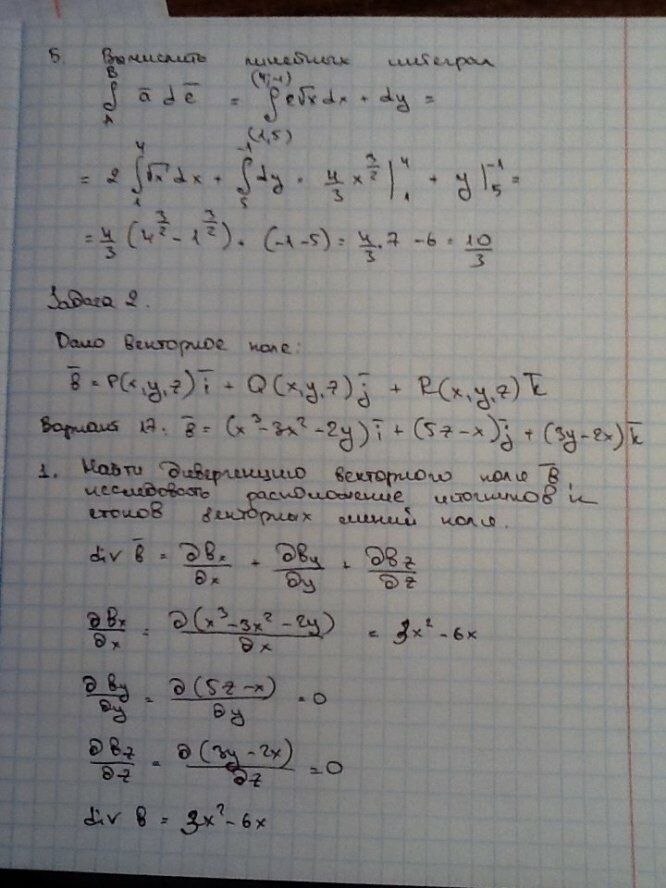 5. Вычислить линейный интеграл
∫_A^B ā dē = ∫_(1,5)^(4,-1) 2√x dx + dy =
= 2 ∫_1^4 √x dx + ∫_5^-1 dy = 4/3 x^(3/2) |_1^4 + y |_5^-1 =
= 4/3 (4^(3/2) - 1^(3/2)) + (-1-5) = 4/3 · 7 - 6 = 10/3
Задача 2.
Дано векторное поле:
b̄ = P(x,y,z) ī + Q(x,y,z) j̄ + R(x,y,z) k̄
Вариант 17. b̄ = (x³-3x²-2y) ī + (5z-x) j̄ + (3y-2x) k̄
1. Найти дивергенцию векторного поле b̄,
исследовать расположение источников и
стоков векторных линий поля.
div b̄ = ∂bx/∂x + ∂by/∂y + ∂bz/∂z
∂bx/∂x = ∂(x³-3x²-2y)/∂x = 3x² - 6x
∂by/∂y = ∂(5z-x)/∂y = 0
∂bz/∂z = ∂(3y-2x)/∂z = 0
div b = 3x² - 6x